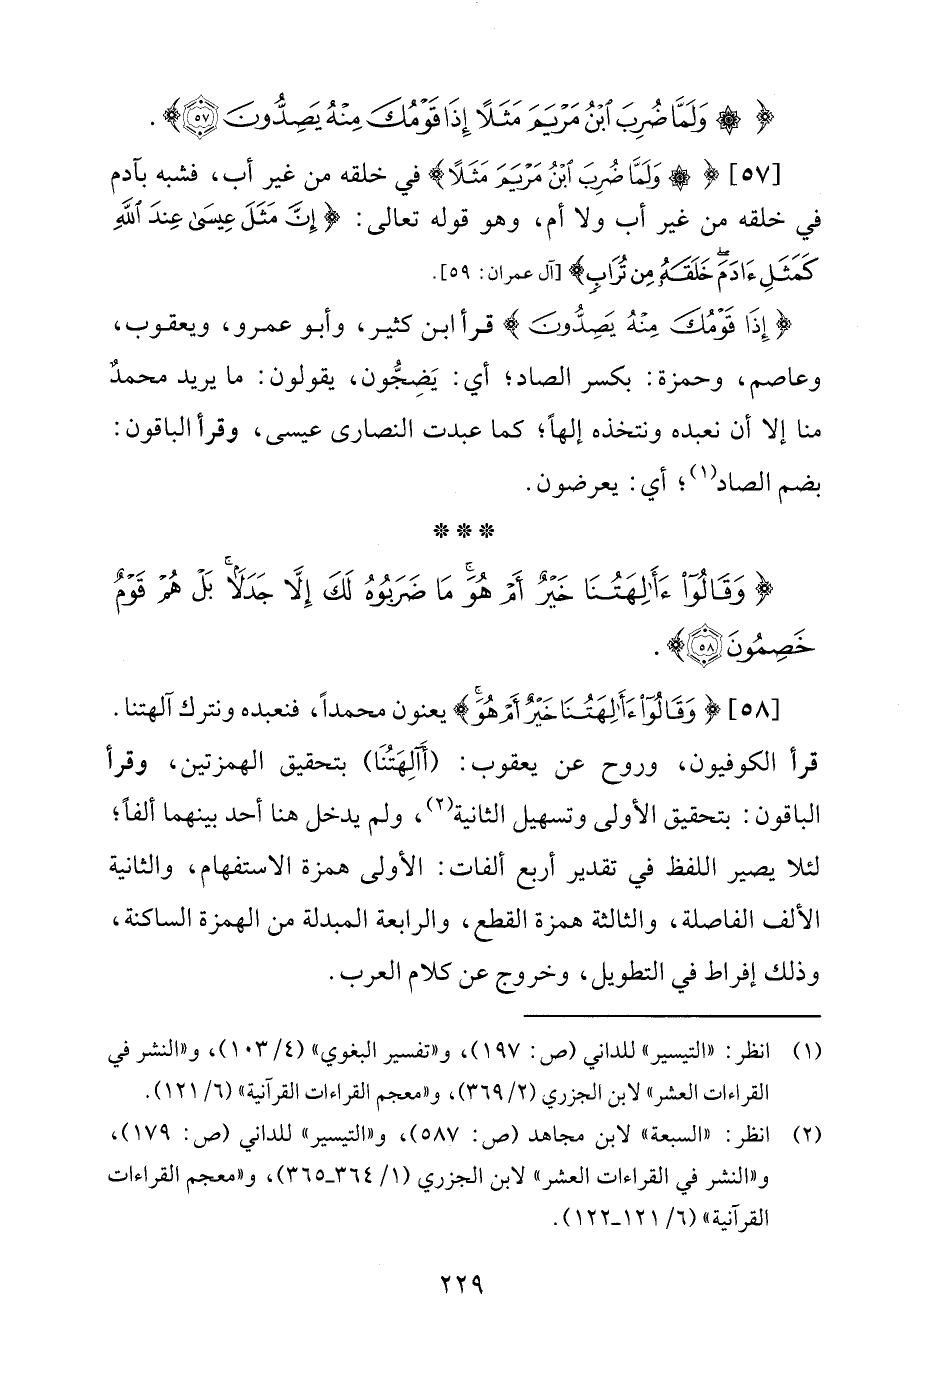 ﴿ ۞ وَلَمَّا ضُرِبَ ٱبْنُ مَرْيَمَ مَثَلًا إِذَا قَوْمُكَ مِنْهُ يَصِدُّونَ ۝٥٧﴾ .
[٥٧] ﴿ ۞ وَلَمَّا ضُرِبَ ٱبْنُ مَرْيَمَ مَثَلًا﴾ في خلقه من غير أب، فشبه بآدم
في خلقه من غير أب ولا أم، وهو قوله تعالى: ﴿ إِنَّ مَثَلَ عِيسَىٰ عِندَ ٱللَّهِ
كَمَثَلِ ءَادَمَ ۖ خَلَقَهُۥ مِن تُرَابٍ﴾ [آل عمران: ٥٩].
﴿ إِذَا قَوْمُكَ مِنْهُ يَصِدُّونَ ﴾ قرأ ابن كثير، وأبو عمرو، ويعقوب،
وعاصم، وحمزة: بكسر الصاد؛ أي: يَضِجُّون، يقولون: ما يريد محمدٌ
منا إلا أن نعبده ونتخذه إلهاً؛ كما عبدت النصارى عيسى، وقرأ الباقون:
بضم الصاد(١)؛ أي: يعرضون.
* * *
﴿ وَقَالُوٓا۟ ءَأَٰلِهَتُنَا خَيْرٌ أَمْ هُوَ ۚ مَا ضَرَبُوهُ لَكَ إِلَّا جَدَلًۢا ۚ بَلْ هُمْ قَوْمٌ
خَصِمُونَ ۝٥٨﴾ .
[٥٨] ﴿ وَقَالُوٓا۟ ءَأَٰلِهَتُنَا خَيْرٌ أَمْ هُوَ ۚ﴾ يعنون محمداً، فنعبده ونترك آلهتنا.
قرأ الكوفيون، وروح عن يعقوب: (أَآلِهَتُنَا) بتحقيق الهمزتين، وقرأ
الباقون: بتحقيق الأولى وتسهيل الثانية(٢)، ولم يدخل هنا أحد بينهما ألفاً؛
لئلا يصير اللفظ في تقدير أربع ألفات: الأولى همزة الاستفهام، والثانية
الألف الفاصلة، والثالثة همزة القطع، والرابعة المبدلة من الهمزة الساكنة،
وذلك إفراط في التطويل، وخروج عن كلام العرب.
(١) انظر: «التيسير» للداني (ص: ١٩٧)، و«تفسير البغوي» (٤/ ١٠٣)، و«النشر في
القراءات العشر» لابن الجزري (٢/ ٣٦٩)، و«معجم القراءات القرآنية» (٦/ ١٢١).
(٢) انظر: «السبعة» لابن مجاهد (ص: ٥٨٧)، و«التيسير» للداني (ص: ١٧٩)،
و«النشر في القراءات العشر» لابن الجزري (١/ ٣٦٤ـ٣٦٥)، و«معجم القراءات
القرآنية» (٦/ ١٢١ـ١٢٢).
٢٢٩